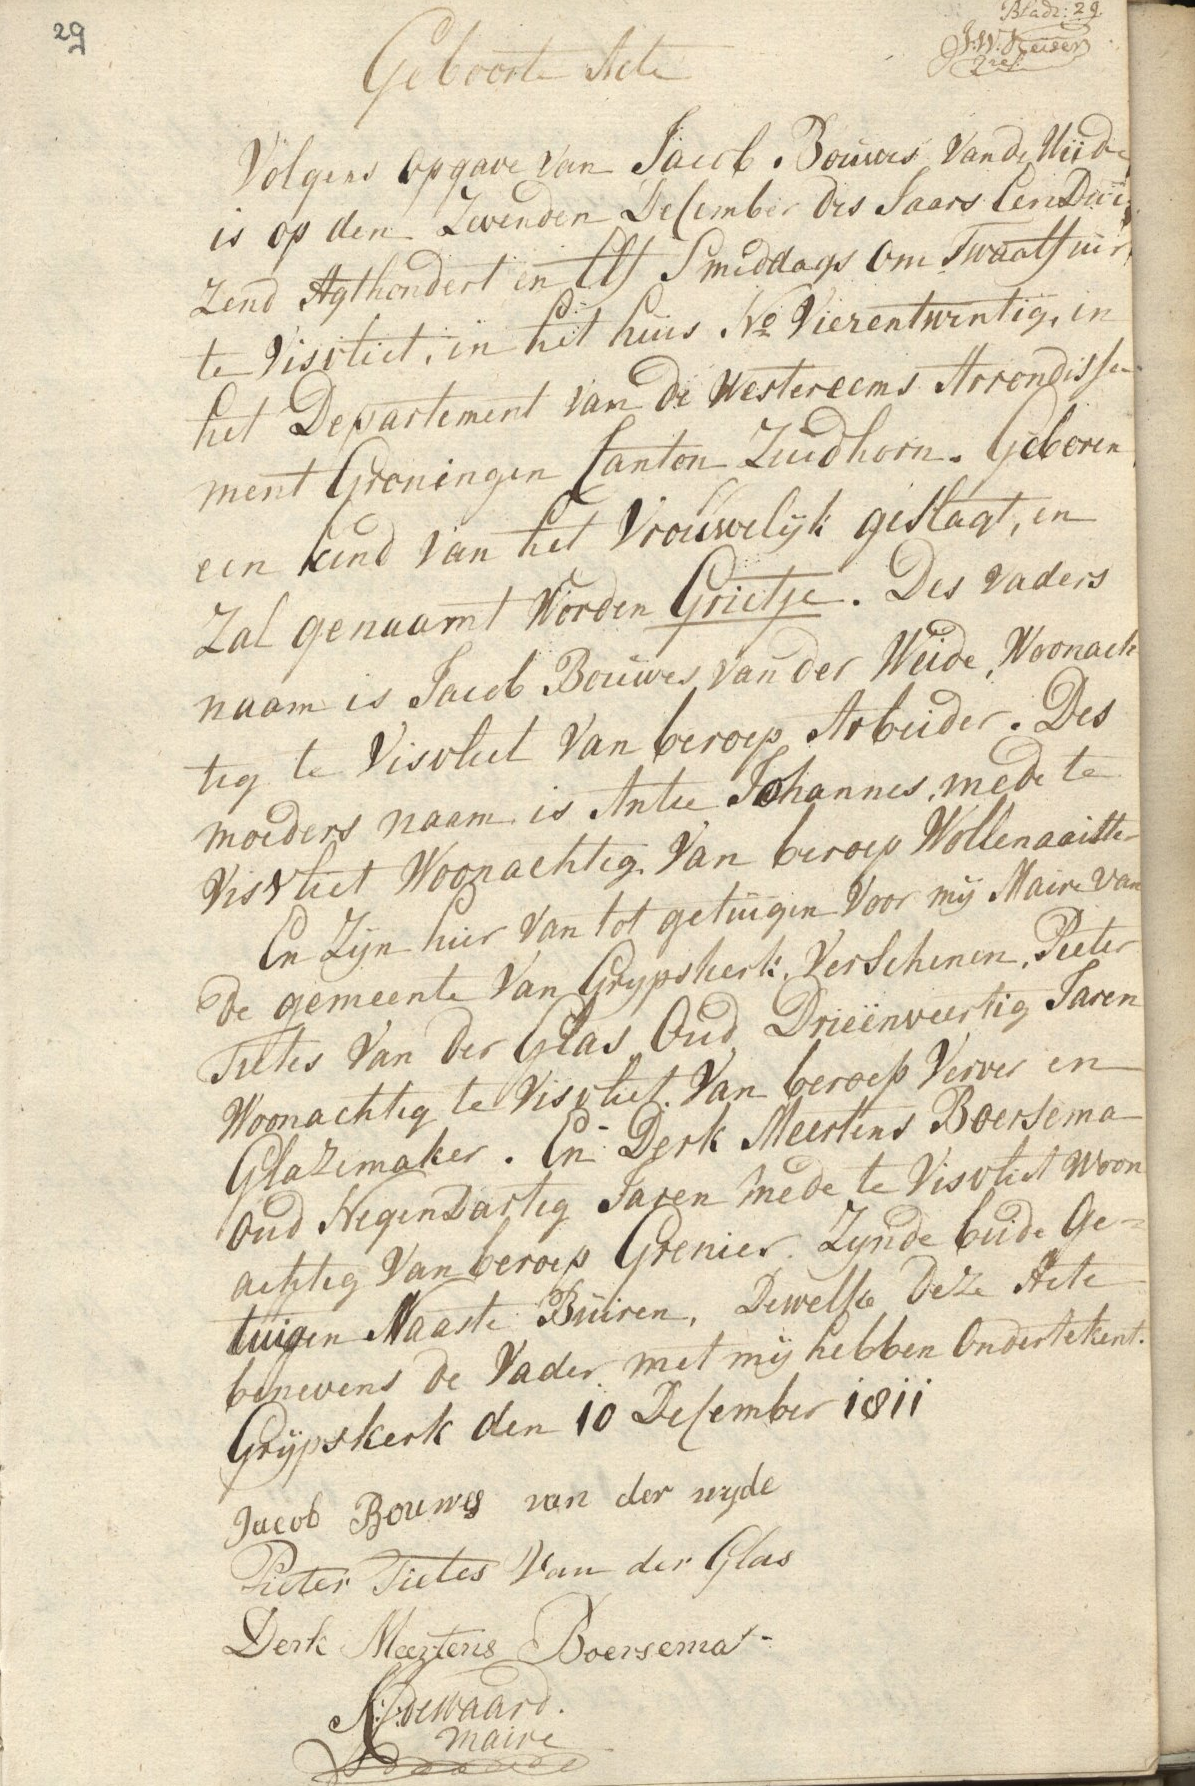 29
Bladz: 29
J.W. Keiser
Geboorte Acte
Volgens opgave van Jacob Bouwes van de Weide
is op den Zevenden December des Jaars EenDui
zend Agthondert en Elf Smiddags Om Twaalf uir
te Visvliet, in het huis No Vierentwintig, in
het Departement van de Westereems Arrondisse
ment Groningen Canton Zuidhorn. Geboren
een kind van het Vrouwelijk geslagt, en
Zal genaamt Worden Grietje. Des vaders
naam is Jacob Bouwes van der Weide, Woonach
tig te Visvliet Van beroep Arbeider. Des
moeders naam is Antie Johannes, mede te
Visvliet Woonachtig. Van beroep Wollenaaister
En Zijn hier van tot getuigen voor mij Maire van
de gemeente Van Grypskerk, Verschenen, Pieter
Tietes Van der Glas Oud Drieënveertig Jaren
Woonachtig te Visvliet. Van beroep Verver en
Glazemaker. En Derk Meertens Boersema
Oud Negendartig Jaren mede te Visvliet Woon
achtig Van beroep Grenier. Zynde beide Ge=
tuigen Naaste Buiren, Dewelke Deze Acte
benevens de Vader met mij hebben Ondertekent.
Grijpskerk den 10 December 1811
Jacob Bouwes van der wyde
Pieter Tietes Van der Glas
Derk Meertens Boersema
dewaard.
maire